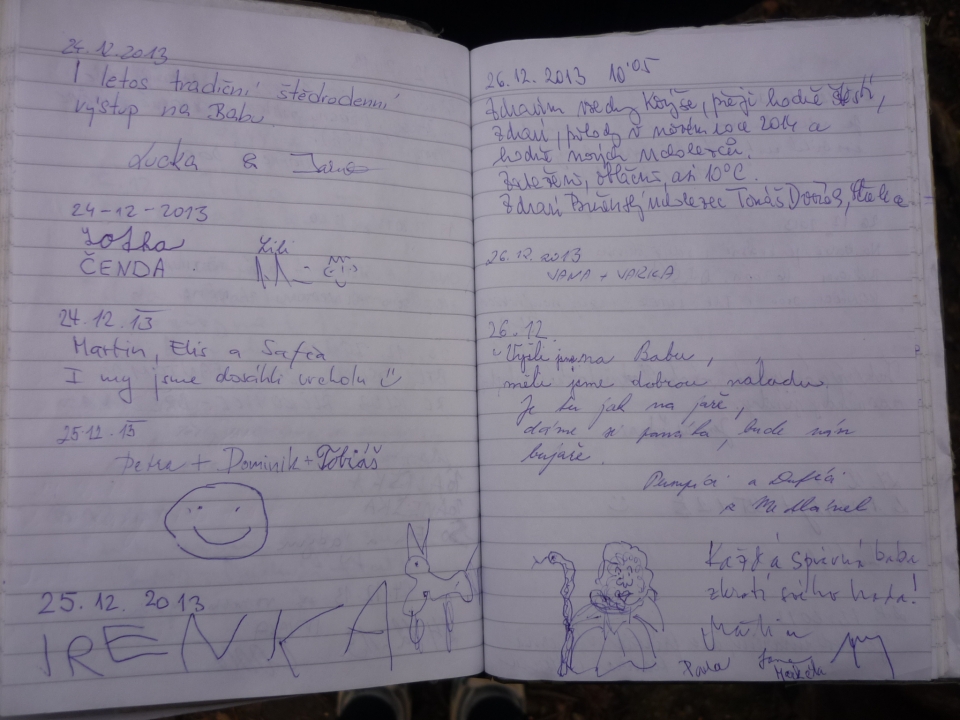 24.12.2013
I letos tradiční štědrodenní
výstup na Babu
Lucka &
24-12-2013
ČENDA
Lili
24.12.13
Martin, Elis a
I my jsme dosáhli vrcholu
25.12.13
Petra + Dominik + Tobiáš
25.12.2013
IRENKA
26.12.2013 10:05
Zdravím všechny, přeji hodně štěstí,
zdraví, pohody v novém roce 2014 a
hodně nových
oblačno, asi 10°C.
Zdraví Tomáš
26.12.2013
JANA +
26.12.
Vyšli jsme na Babu,
měli jsme dobrou náladu.
Je tu jak na jaře,
dáme si panáka, bude nám
bujaře.
a
a
Každá správná baba
zkrotí svého hada!
Martin
Pavla
Markéta